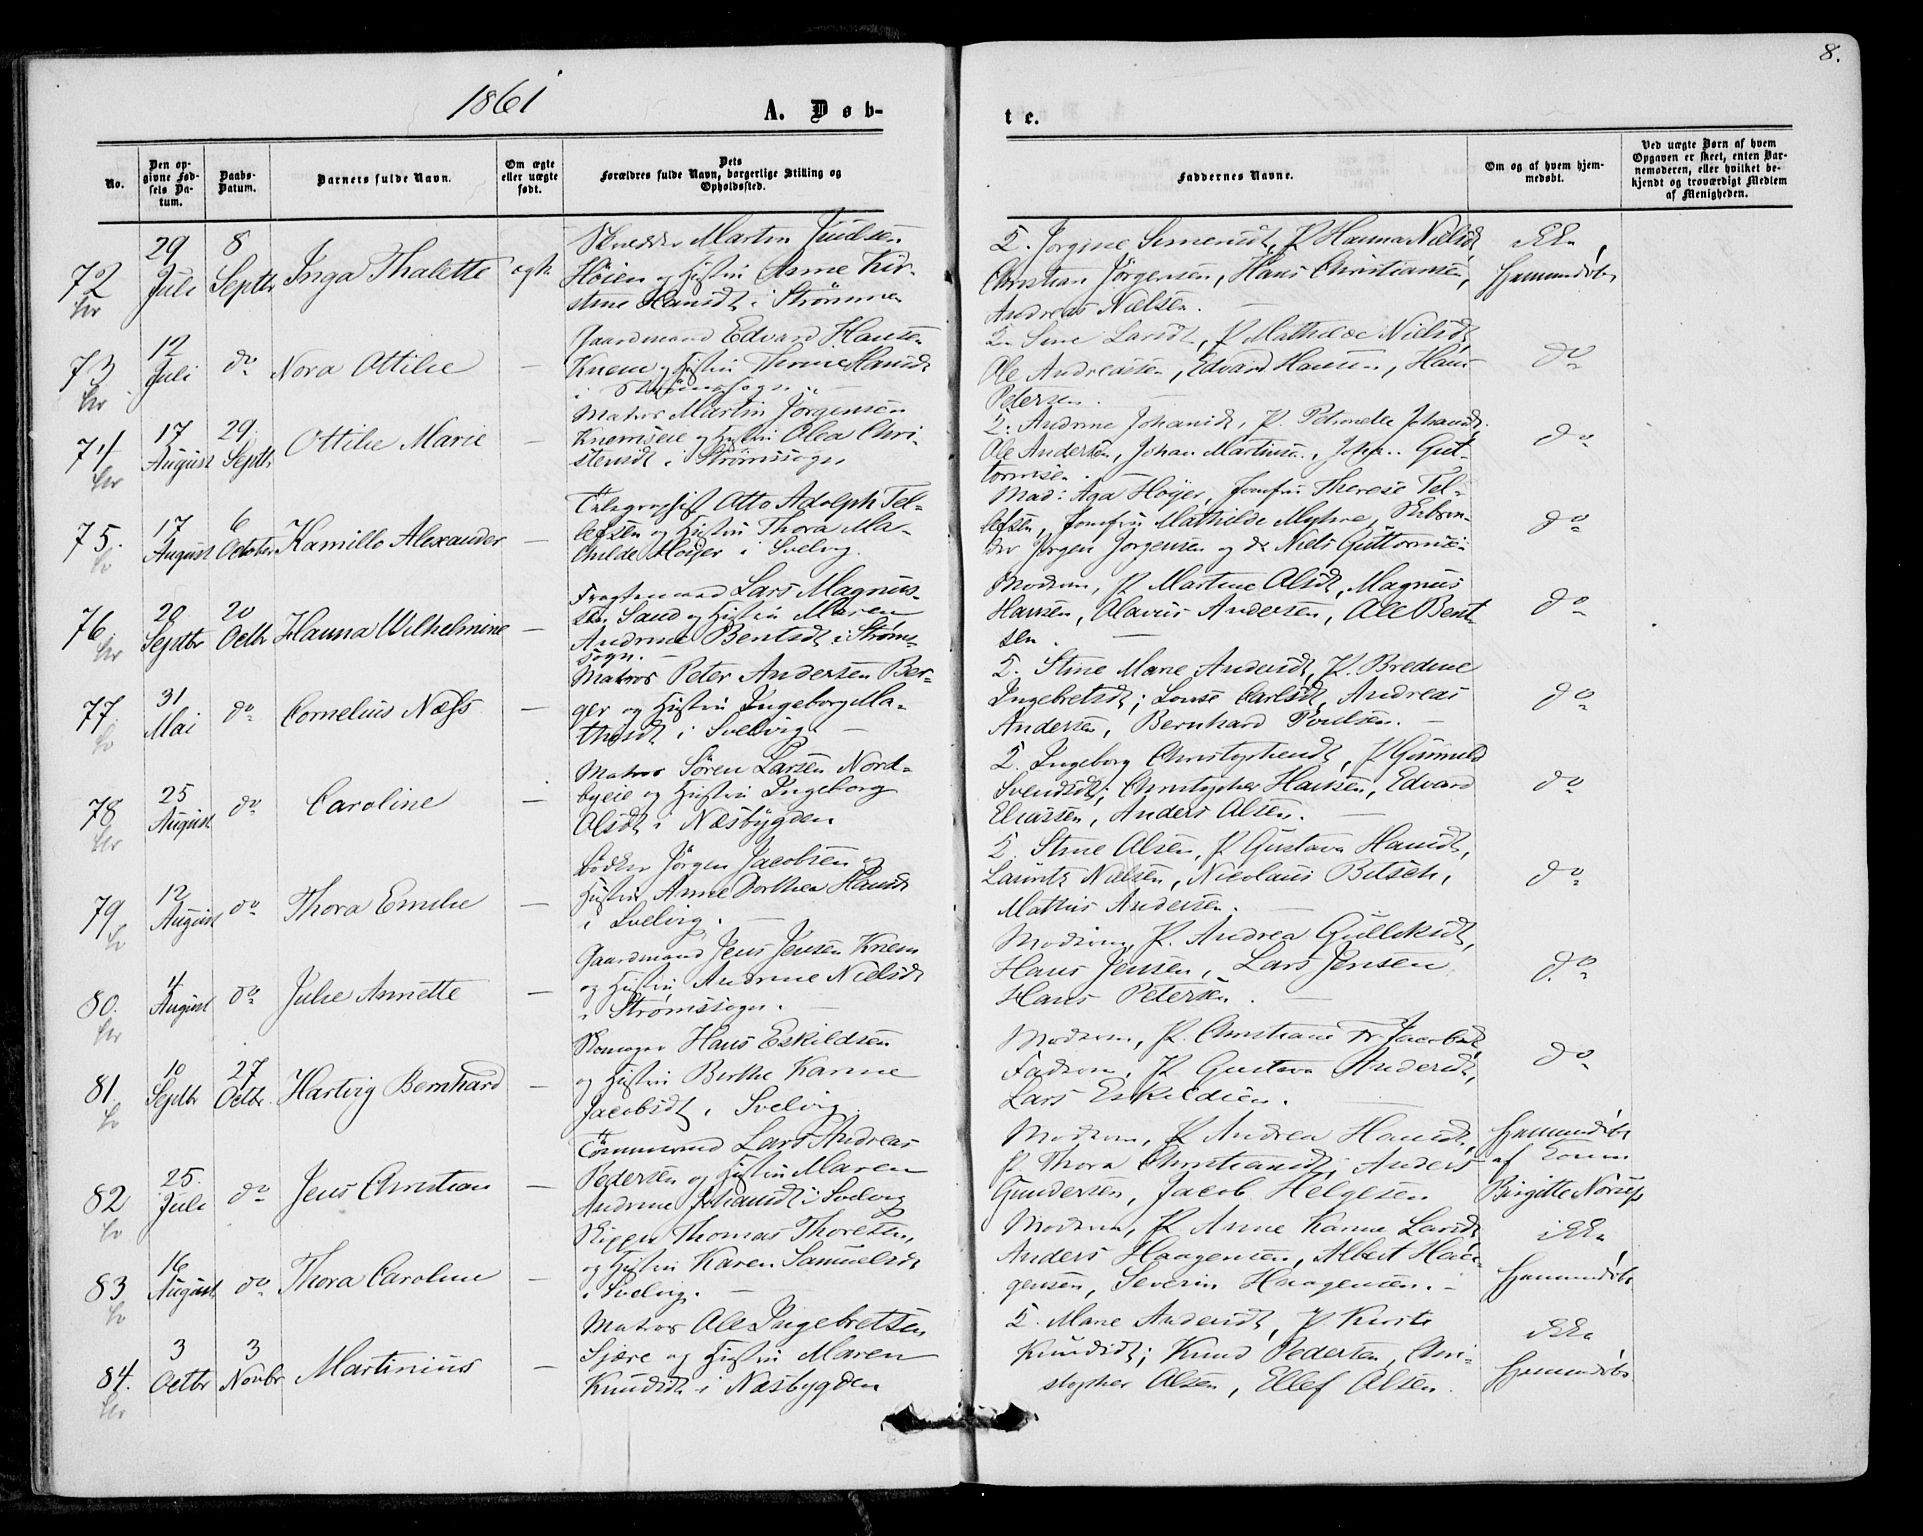 8.
1861
A. Døb-
te.
No.
Den opgivne Fødsels Datum.
Daabs-Datum.
Barnets fulde Navn.
Om ægte eller uægte født.
Dets Forældres fulde Navn, borgerlige Stilling og Opholdssted.
Faddernes Navne.
Om og af hvem hjemmedøbt.
Ved uægte Børn af hvem Opgaven er skeet, enten Barnemoderen, eller hvilket bekjendt og troværdigt Medlem af Menigheden.
72
29 Juli
8 Septbr
Inga Thalette
ægte
Martin
Høien og Hustru Anne Kir-
stine Hansdt i Strømmen
Q. Jørgine P. Hanna Nielsdt,
Christian Jörgensen, Hans Christiansen,
Andreas Nielsen.
ikke
hjemmedøbt
73
12 Juli
do
Nora Ottilie
—
Gaardmand Edvard Hansen
Knem og Hustru Hansdt
i Strømssogn
Q. Larsdt, P. Nielsdt,
Ole Andreassen, Edvard Hansen, Hans
Petersen.
do
74
17 August
29. Septbr
Ottilie Marie
—
Matros Martin Jörgensen
Knemseie og Hustru Olea Chri-
stensdt i Strømssogn
Q. Andrine Johansdt, P. Petronelle Johansdt,
Ole Andersen, Johan Martinsen, Johan Gut-
tormsen.
do
75.
17 August
6 October
Kamillo Alexander
—
Telegrafist Otto Adolph Tel-
lefsen og Hustru Thora Ma-
thilde Høyer i Svelvig.
Mad: Aga Høyer, Jomfru Therese Tel-
lefsen, Jomfru Mathilde Myhre,
Jørgen Jørgensen og Niels Guttormsen
do
76.
20 Septbr
20 Octbr
Hanna Wilhelmine
—
Fragtemand Lars Magnus-
sen Sand og Hustru Maren
Andrine Bentsdt i Strøms-
sogn.
Modrem, P. Martine Olsdt, Magnus
Hansen, Olavus Andersen, Ole Bent-
sen.
do
77.
31 Mai
do
Cornelius Næss
—
Matros Peter Andersen Ber-
ger og Hustru Ingeborg Ma-
thisdt i Svelvig.
Q. Stine Marie Andersdt, P. Bredine
Ingebretsdt; Louise Carlsdt, Andreas
Andersen, Bernhard Poulsen.
do
78
25 August
do
Caroline
—
Matros Sören Larsen Nord-
byeie og Hustru Ingeborg
Olsdt i Næsbygden
Q. Ingeborg Christophersdt, P. Gunnild
Svendsdt; Christopher Hansen, Edvard
Eliassen, Anders Olsen.
do
79
12 August
do
Thora Emilie
—
Bødker Jörgen Jacobsen og
Hustru Anne Dorthea Hansdt
i Svelvig.
Q. Stine Olsen, P. Gustava Hansdt,
Lauritz Nielsen, Nicolaus Bitsch,
Mathis Andersen.
do
80.
4 August
do
Julie Annette
—
Gaardmand Jens Jensen Knem
og Hustru Andrine Nielsdt
i Strømssogn.
Modrem, P. Andrea Gulliksdt,
Hans Jensen, Lars Jensen
Hans Petersen.
do
81.
10 Septbr
27 Octbr.
Hartvig Bernhard
—
Skomager Hans Eskildsen
og Hustru Birthe Karine
Jacobsdt i Svelvig.
Modrem, P. Christiane Jacobsdt,
Fadrem, P. Gustava Andersdt,
Lars Eskildsen.
do
82
25. Juli
do
Jens Christian
—
Tømmermand Lars Andreas
Pedersen og Hustru Maren
Andrine Johansdt i Svelvig
Modrem, P. Andrea Hansdt,
P. Thora Christiansdt; Anders
Gundersen, Jacob Helgesen
hjemmedøbt
af
Birgitte
83
16 August
do
Thora Caroline
—
Thomas Thoresen,
og Hustru Karen Samuelsdt
i Svelvig.
Modrem, P. Anne Karine Larsdt
Anders Haagensen, Albert Haa-
gensen, Severin Haagensen.
ikke
hjemmedøbt
84.
3 Octbr
3 Novbr
Martinius
—
Matros Ole Ingebretsen
og Hustru Maren
Knudsdt i Næsbygden
Q. Marie Andersdt, P.
Knudsdt; Knud Pedersen, Chri-
stopher Olsen, Ellef Olsen.
ikke
hjemmedøbt